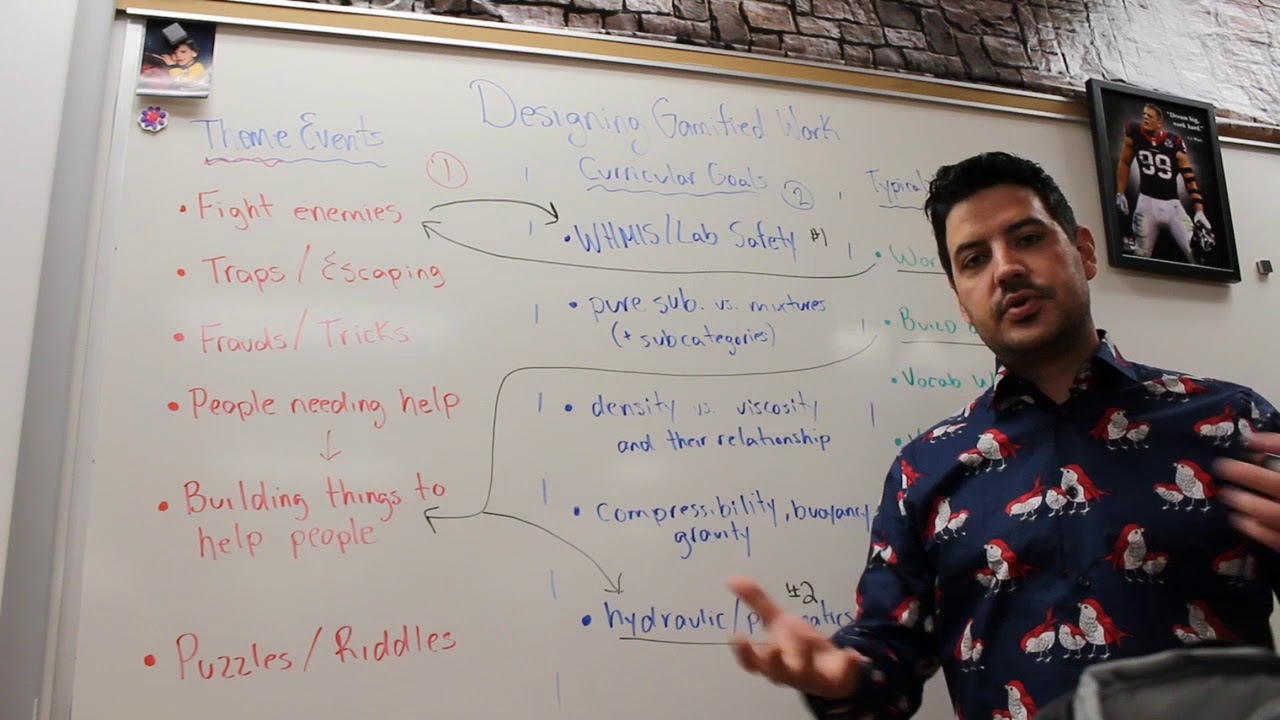 Designing Gamified Work
Theme Events
①
Curricular Goals
②
• Fight enemies
• WHMIS/Lab Safety #1
• Traps / Escaping
• pure sub. vs. mixtures
(+ subcategories)
• Frauds / Tricks
• People needing help
• density vs. viscosity
and their relationship
• Building things to
help people
• compressibility, buoyancy
gravity
#2
• hydraulic/
• Puzzles / Riddles
• Vocab
"Dream big,
work hard."
99